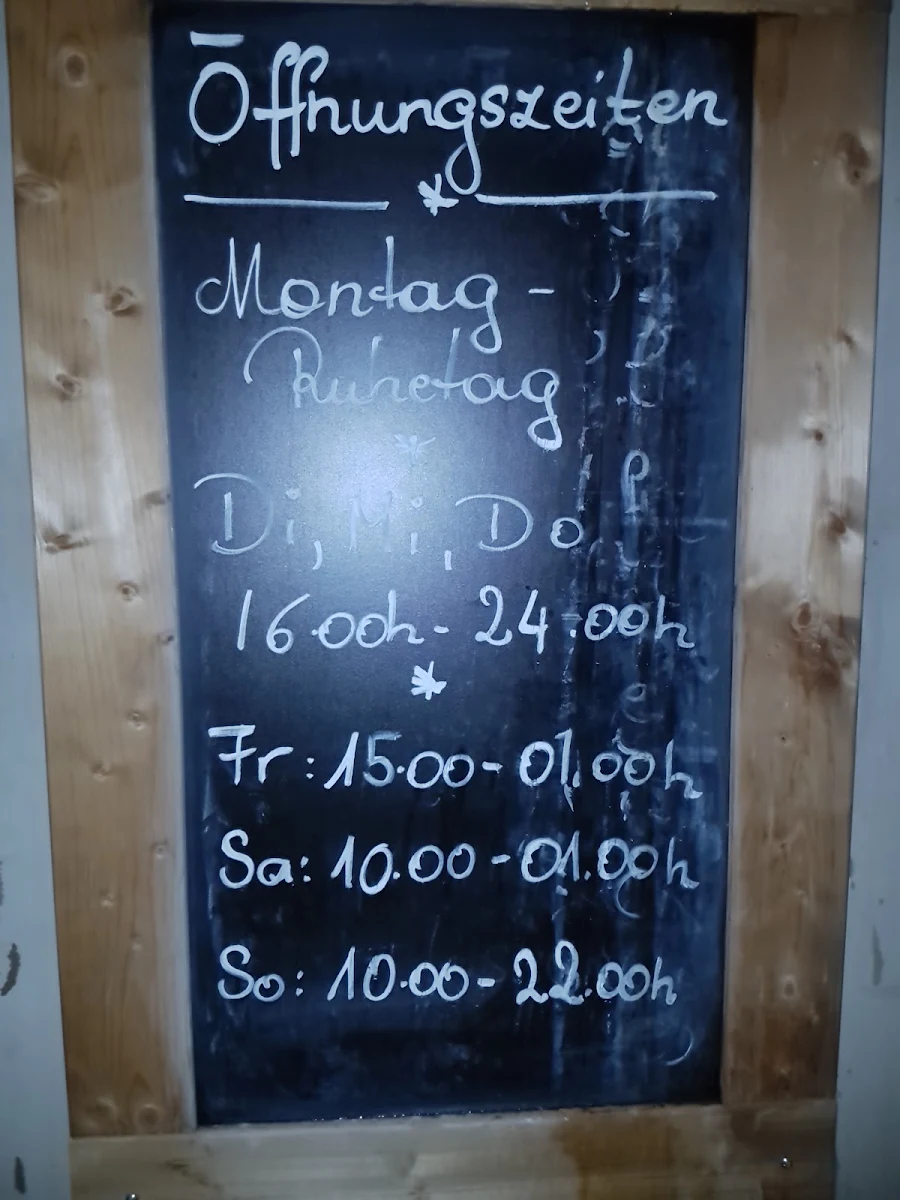 Öffnungszeiten
*
Montag -
Ruhetag
*
Di, Mi, Do
16.00h - 24.00h
*
Fr: 15.00 - 01.00h
Sa: 10.00 - 01.00h
So: 10.00 - 22.00h